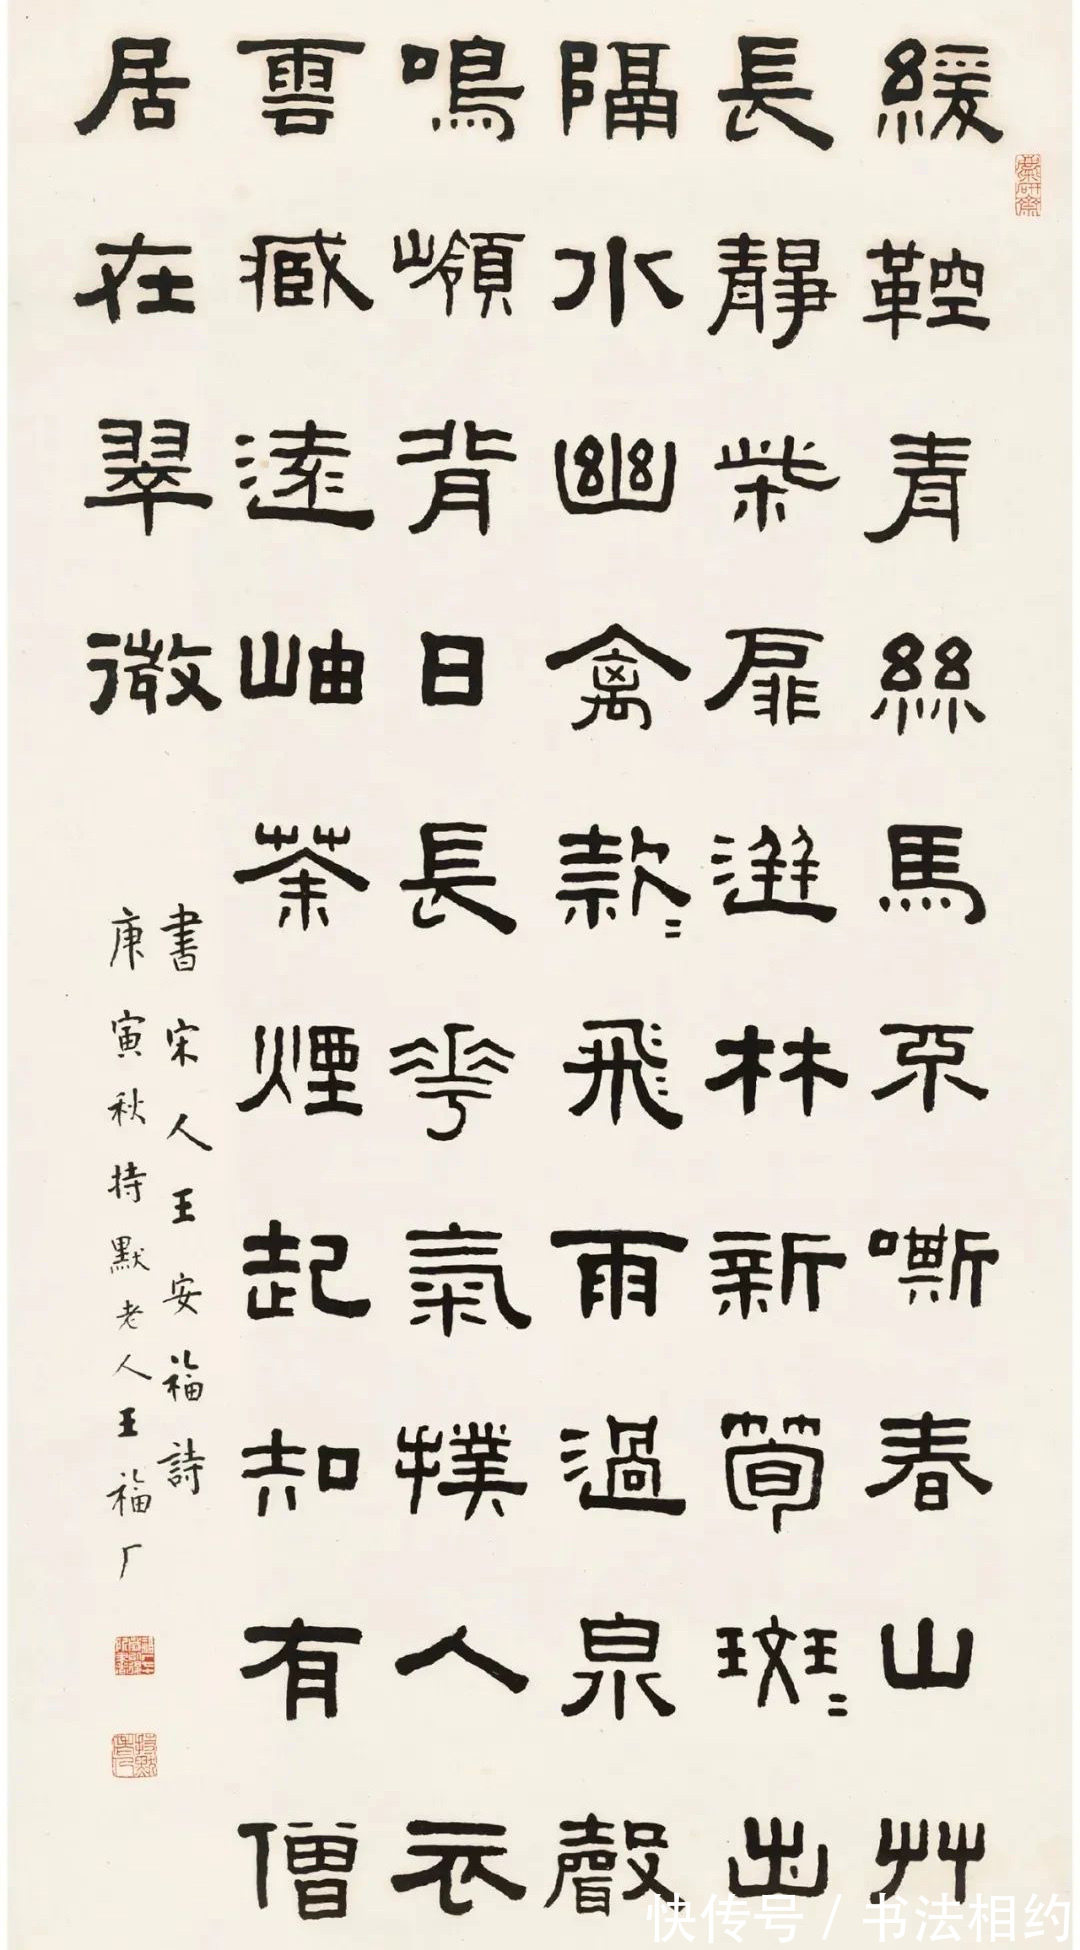 緩鞚青絲馬不嘶春山艸
長靜柴扉迸林新筍斑〻出
隔水幽禽款〻飛雨過泉聲
鳴嶺背日長花氣撲人衣
雲臧遠岫茶煙起知有僧
居在翠微
書宋人王安福詩
庚寅秋持默老人王福厂
快传号 / 书法相约